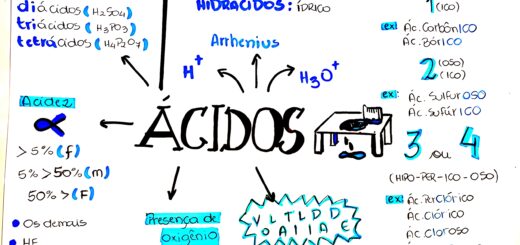 diácidos (H2SO4)
triácidos (H3PO3)
tetrácidos (H4P2O7)
HIDRÁCIDOS: ÍDRICO
Arrhenius
H+
H3O+
Acidez
α
> 5% (f)
5% > 50% (m)
50% > (F)
Os demais
HF
ÁCIDOS
Presença de
oxigênio
1 (ICO)
ex: Ác. CarbônICO
Ác. BórICO
2 (OSO)
(ICO)
ex: Ác. SulfurOSO
Ác. SulfúrICO
3 ou 4
(HIPO-PER-ICO-OSO)
ex: Ác. PERClórICO
Ác. ClórICO
Ác. ClorOSO